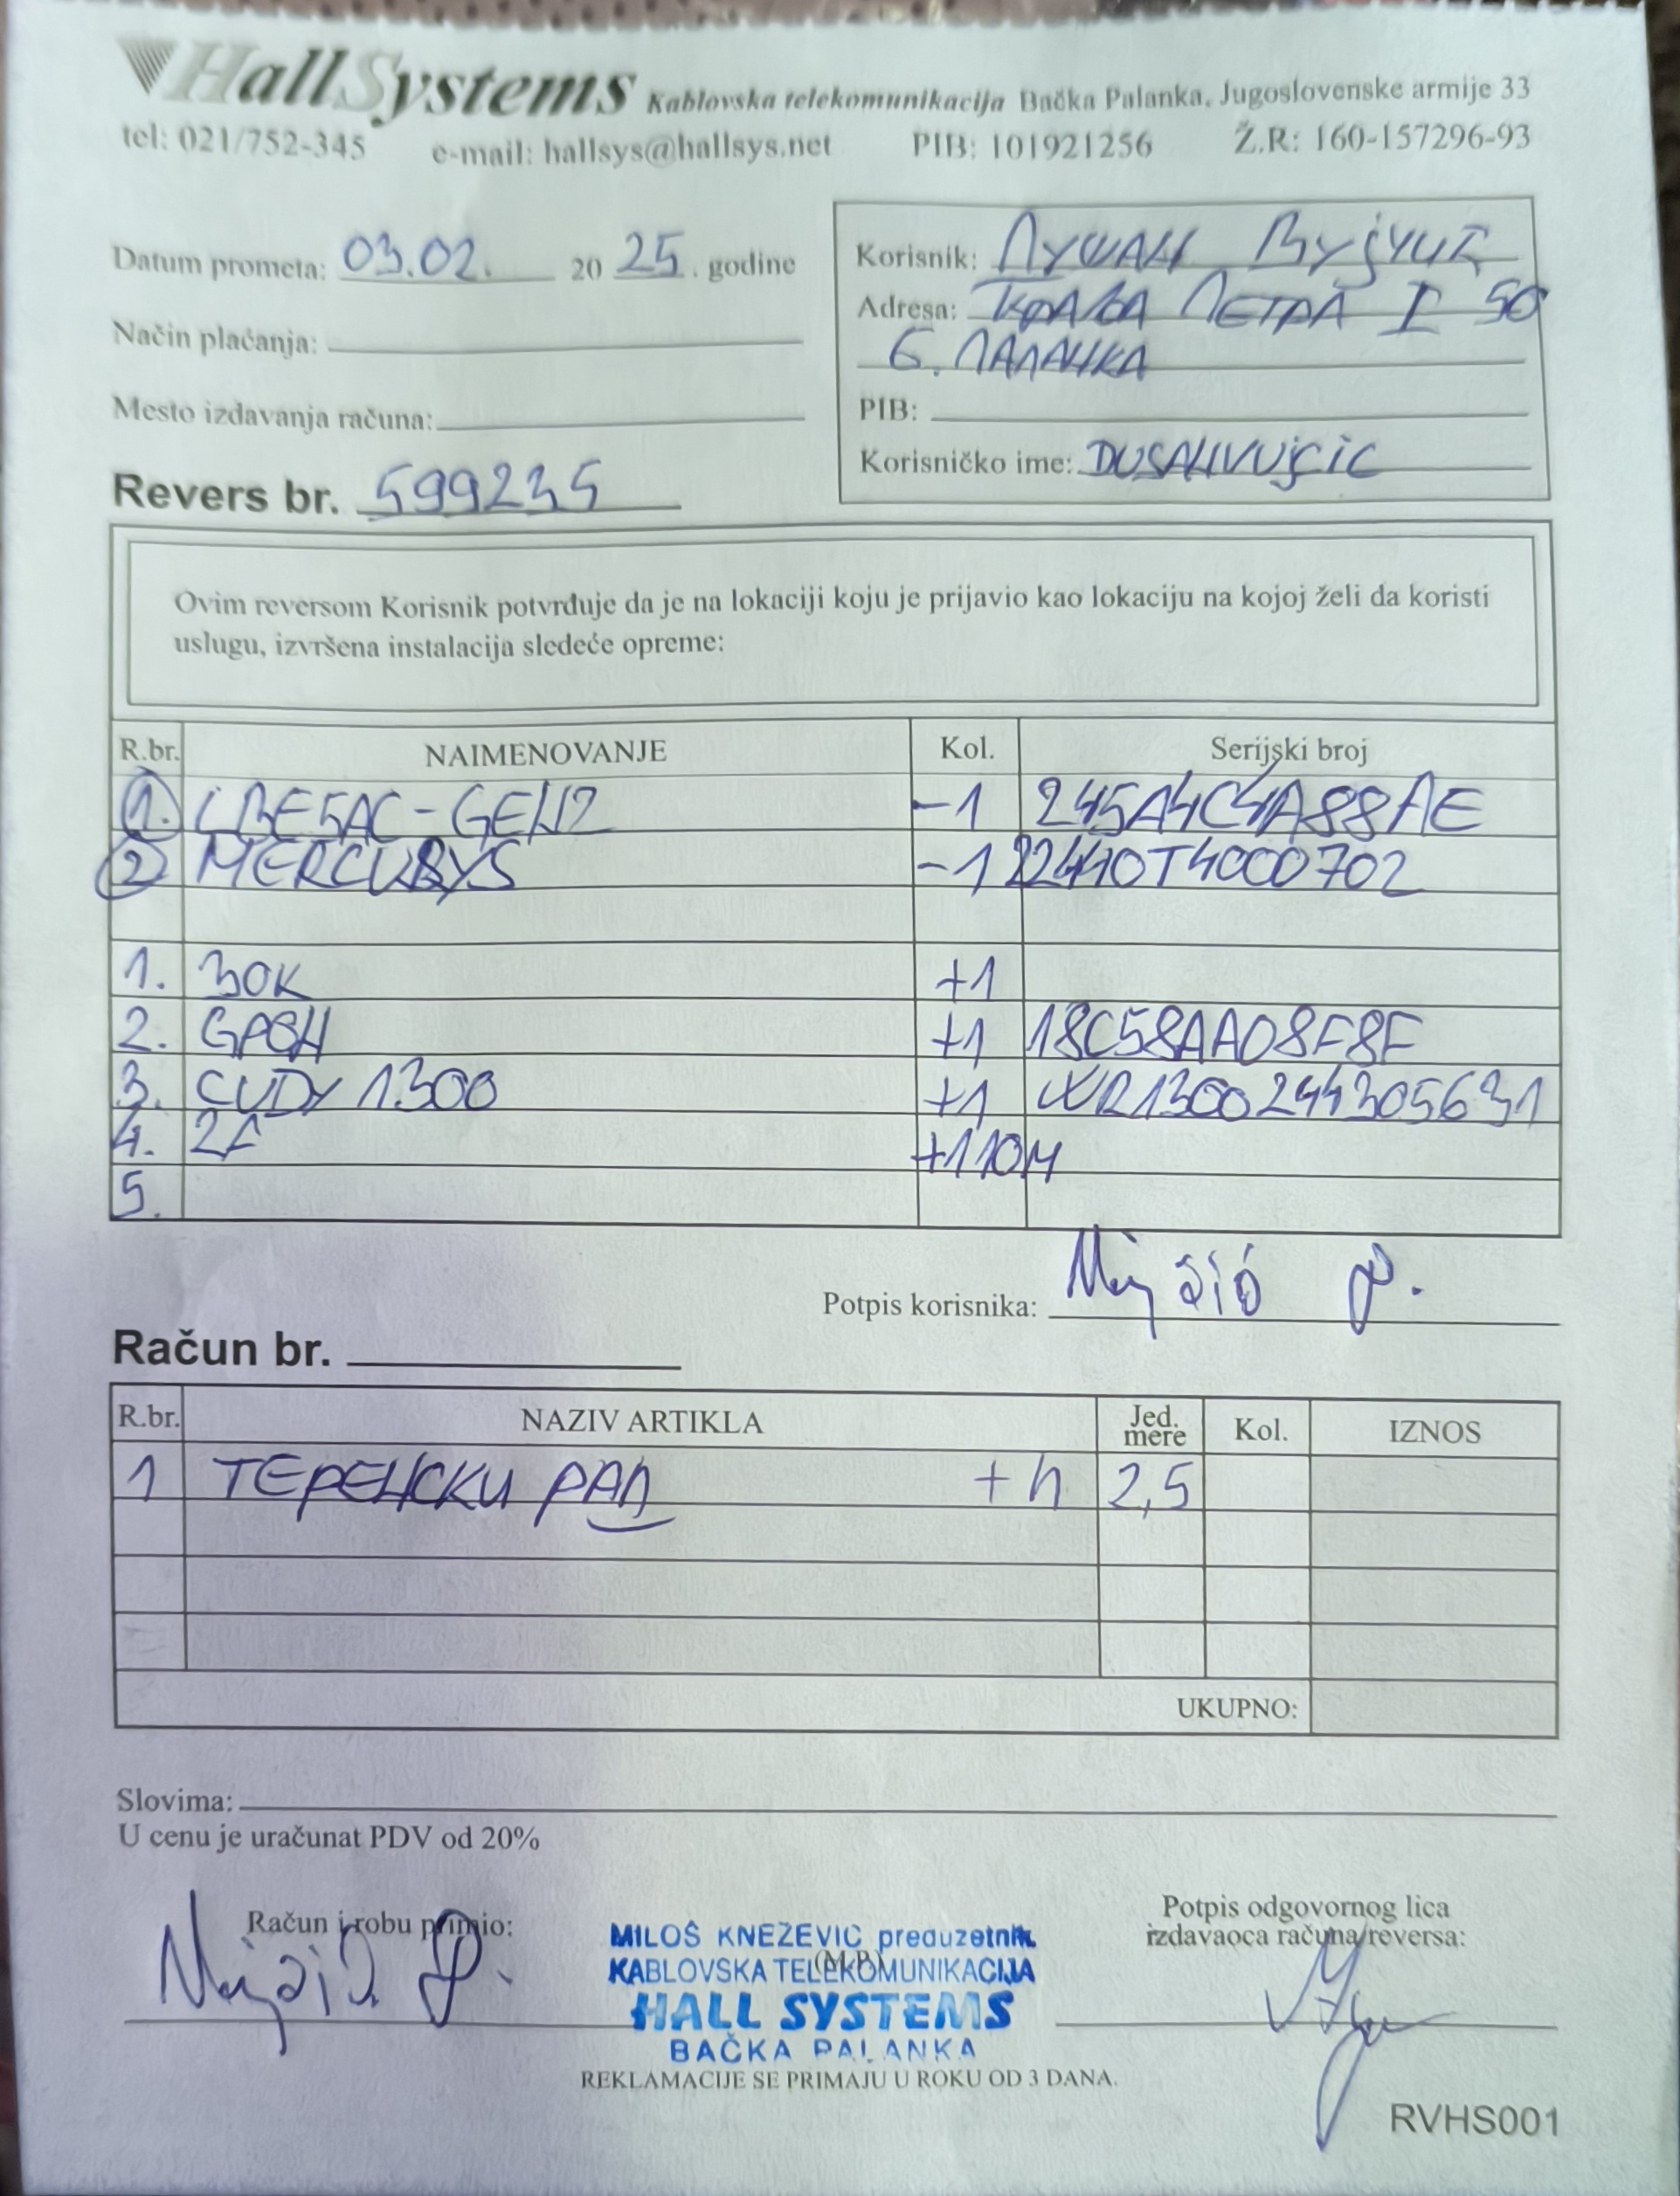 HallSystems Kablovska telekomunikacija Bačka Palanka, Jugoslovenske armije 33
tel: 021/752-345 e-mail: hallsys@hallsys.net PIB: 101921256 Ž.R: 160-157296-93
Datum prometa: 03.02. 2025. godine
Način plaćanja:
Mesto izdavanja računa:
Revers br. 599235
Korisnik: Душан Вујчић
Adresa: Краља Петра I 50
Б. ПАЛАНКА
PIB:
Korisničko ime: DUSANVUJCIC
Ovim reversom Korisnik potvrđuje da je na lokaciji koju je prijavio kao lokaciju na kojoj želi da koristi
uslugu, izvršena instalacija sledeće opreme:
R.br. NAIMENOVANJE Kol. Serijski broj
1. LBE5AC-GEN2 -1 245A4C4A88AE
2 MERCUSYS -1 22440T4000702
1. ЗОК +1
2. GPON +1 18C58AA08F8F
3. CUDY 1300 +1 WR1300244305631
4. +110M
5.
Potpis korisnika:
Račun br.
R.br. NAZIV ARTIKLA Jed. mere Kol. IZNOS
1 ТЕРЕНСКИ РАД +h 2,5
UKUPNO:
Slovima:
U cenu je uračunat PDV od 20%
Račun i robu primio:
MILOŠ KNEŽEVIĆ preduzetnik
(M.P.)
KABLOVSKA TELEKOMUNIKACIJA
HALL SYSTEMS
BAČKA PALANKA
Potpis odgovornog lica
izdavaoca računa/reversa:
REKLAMACIJE SE PRIMAJU U ROKU OD 3 DANA.
RVHS001